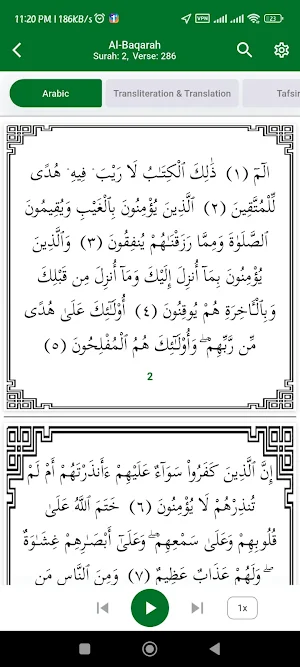 11:20 PM | 186KB/s
VPN
23
Al-Baqarah
Surah: 2, Verse: 286
Arabic
Transliteration & Translation
Tafsir
الٓمٓ ﴿١﴾ ذَٰلِكَ ٱلْكِتَـٰبُ لَا رَيْبَ ۛ فِيهِ ۛ هُدًى
لِّلْمُتَّقِينَ ﴿٢﴾ ٱلَّذِينَ يُؤْمِنُونَ بِٱلْغَيْبِ وَيُقِيمُونَ
ٱلصَّلَوٰةَ وَمِمَّا رَزَقْنَـٰهُمْ يُنفِقُونَ ﴿٣﴾ وَٱلَّذِينَ
يُؤْمِنُونَ بِمَآ أُنزِلَ إِلَيْكَ وَمَآ أُنزِلَ مِن قَبْلِكَ
وَبِٱلْـَٔاخِرَةِ هُمْ يُوقِنُونَ ﴿٤﴾ أُو۟لَـٰٓئِكَ عَلَىٰ هُدًى
مِّن رَّبِّهِمْ ۖ وَأُو۟لَـٰٓئِكَ هُمُ ٱلْمُفْلِحُونَ ﴿٥﴾
2
إِنَّ ٱلَّذِينَ كَفَرُوا۟ سَوَآءٌ عَلَيْهِمْ ءَأَنذَرْتَهُمْ أَمْ لَمْ
تُنذِرْهُمْ لَا يُؤْمِنُونَ ﴿٦﴾ خَتَمَ ٱللَّهُ عَلَىٰ
قُلُوبِهِمْ وَعَلَىٰ سَمْعِهِمْ ۖ وَعَلَىٰٓ أَبْصَـٰرِهِمْ غِشَـٰوَةٌ
ۖ وَلَهُمْ عَذَابٌ عَظِيمٌ ﴿٧﴾ وَمِنَ ٱلنَّاسِ مَن
1x